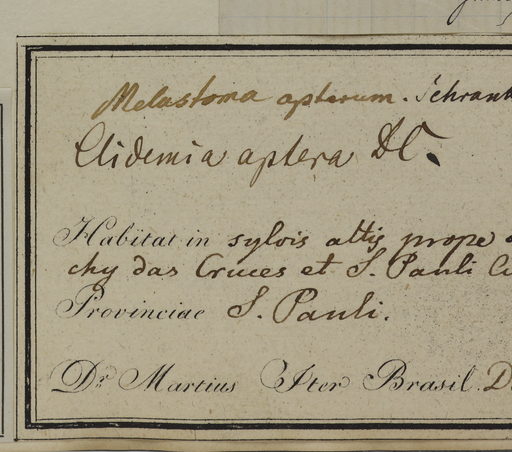 Melastoma apterum. Schrank
Clidemia aptera DC.
Habitat in sylvis altis prope
chy das Cruces et S. Pauli
Provinciae S. Pauli.
Dr. Martius Iter Brasil.